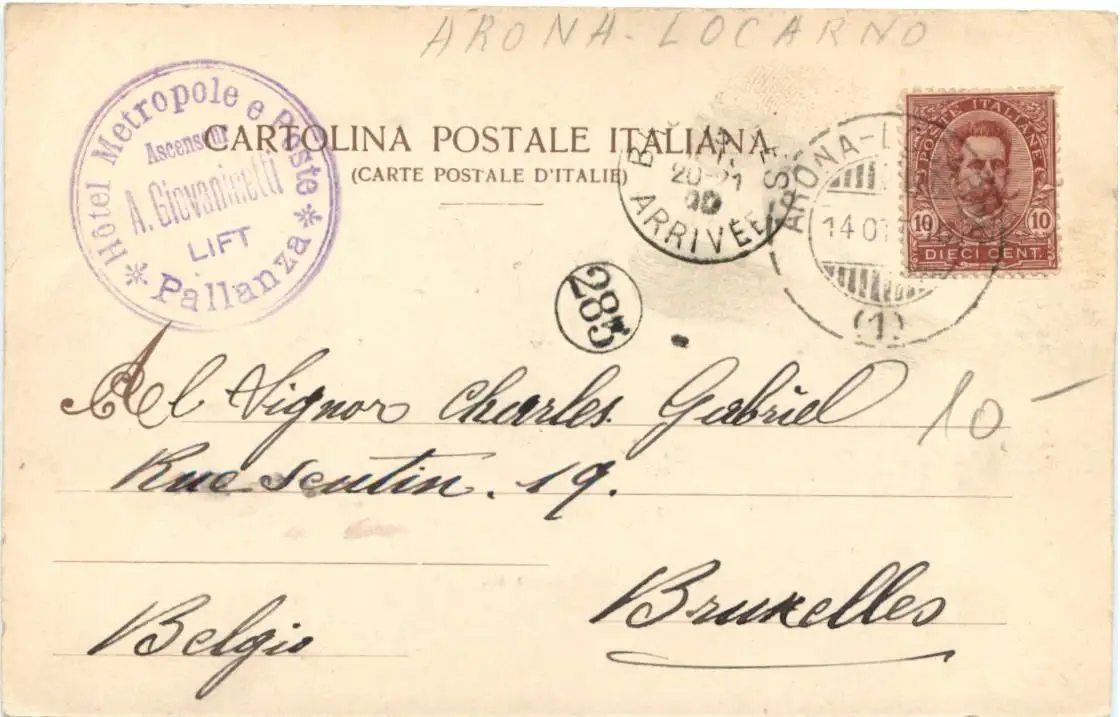 ARONA-LOCARNO
Hôtel Metropole e Poste
Ascenseur
A. Giovaninetti
LIFT
* Pallanza *
CARTOLINA POSTALE ITALIANA
(CARTE POSTALE D'ITALIE)
20-21
00
ARRIVÉE
ARONA-L
14 OT
(1)
POSTE ITALIANE
10 10
DIECI CENT.
285
Al Signor Charles Gabriel
10
Rue Seutin. 19.
Bruxelles
Belgio